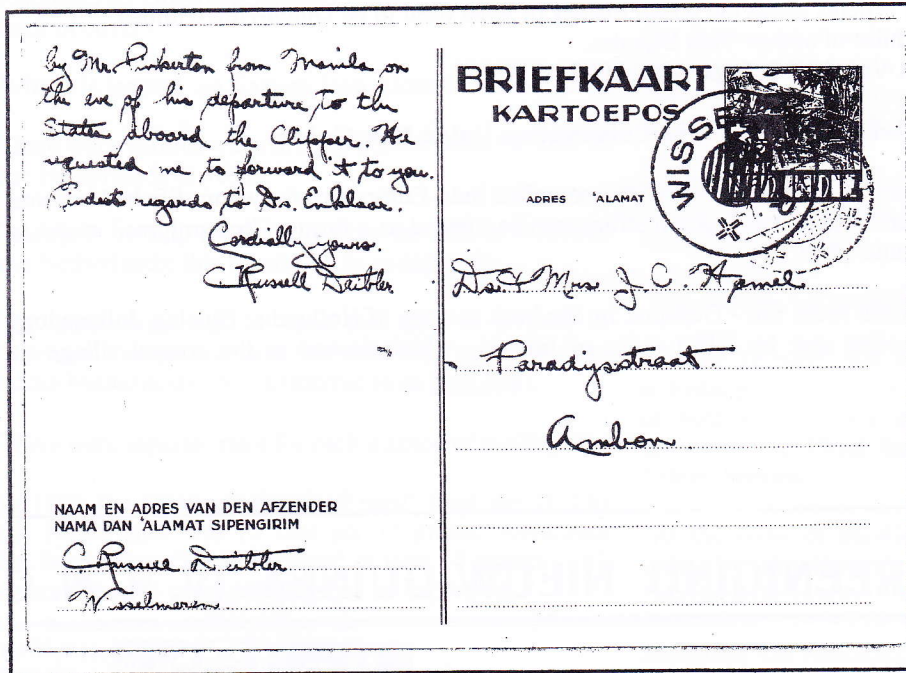 by Mr. Pinkerton from Manila on
the eve of his departure to the
States aboard the Clipper. He
requested me to forward it to you.
Kindest regards to Ds. Enklaar.
Cordially yours.
C. Russell Deibler
NAAM EN ADRES VAN DEN AFZENDER
NAMA DAN ‘ALAMAT SIPENGIRIM
C. Russell Deibler
Wisselmeren
BRIEFKAART
KARTOEPOS
WISSE
ADRES ‘ALAMAT
Ds. & Mrs. J. C. Hamel
Paradijsstraat.
Ambon